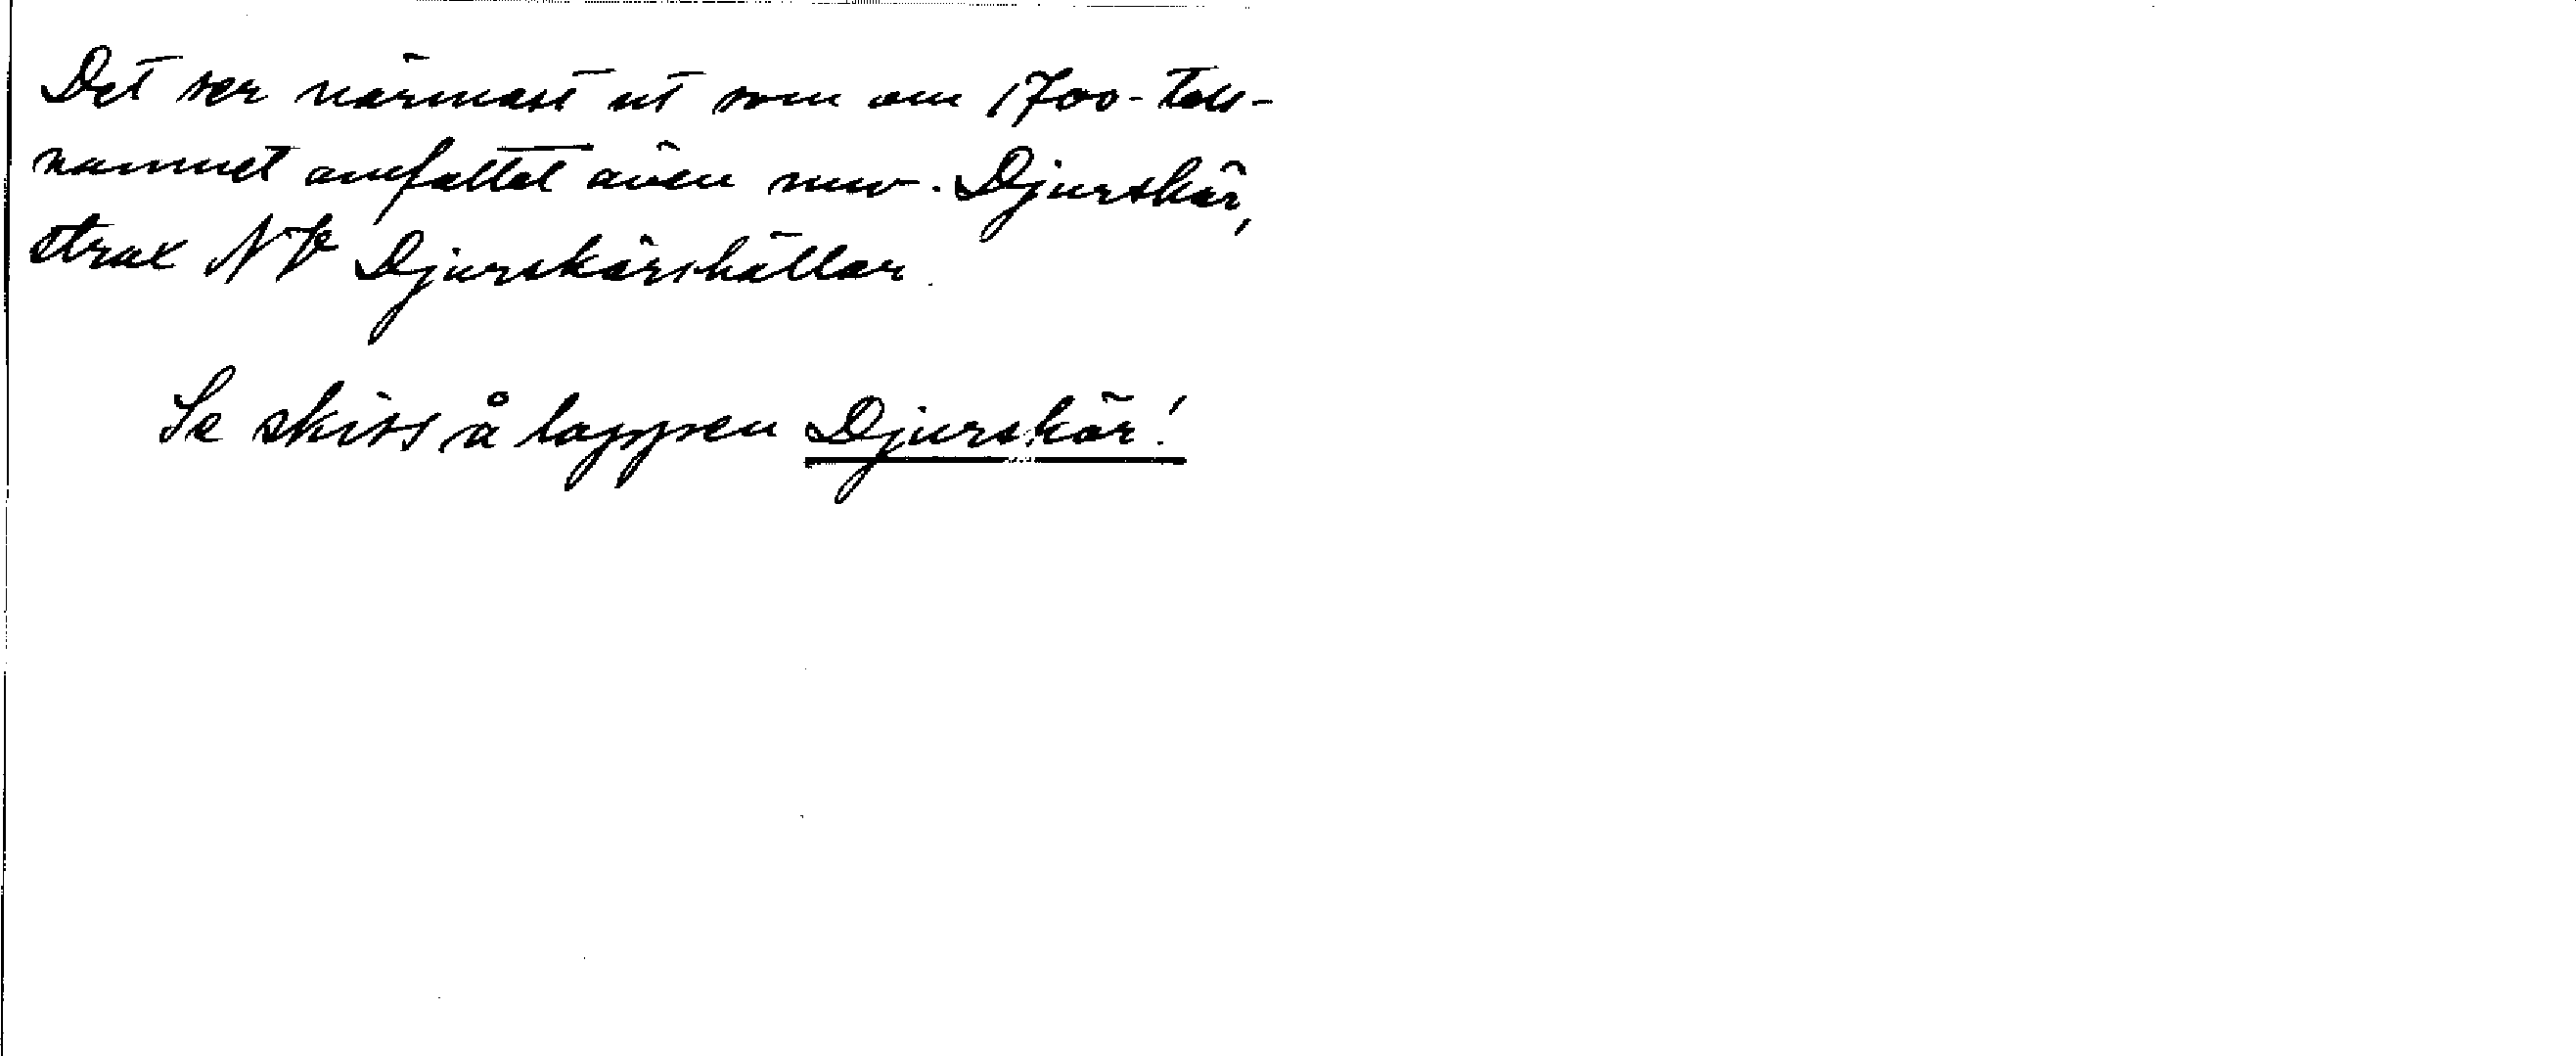 Det ser närmast ut som om 1700-tals-
namnet omfattat även nuv. Djurskär,
strax NV Djurskärshällar.
Se skiss å lappen Djurskär!